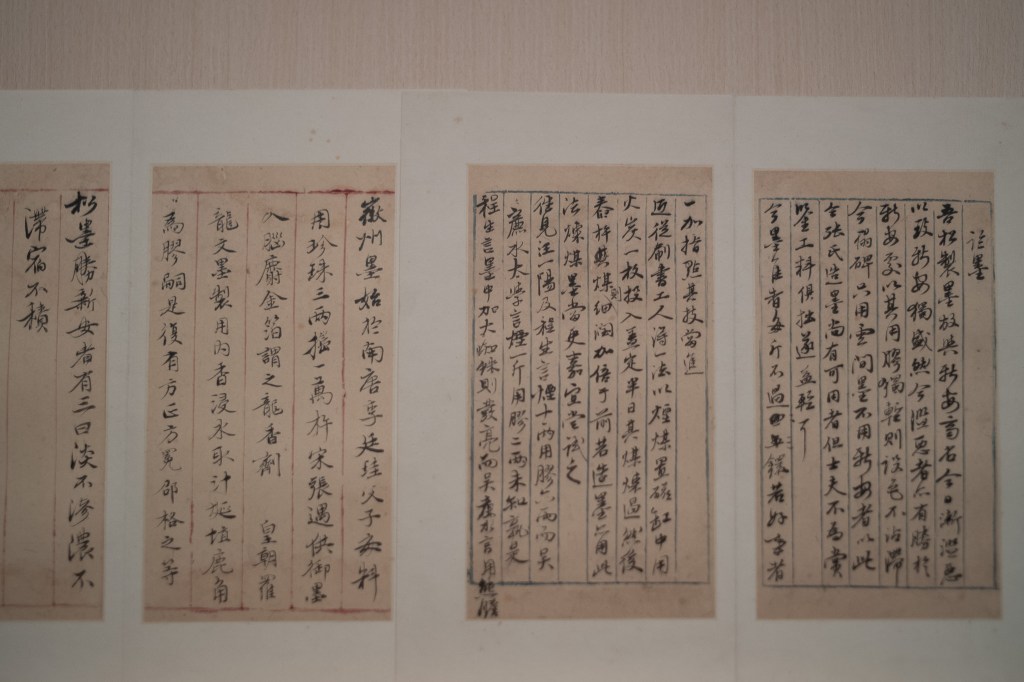 論墨
吾松製墨故與新安齊名今日漸濫惡
以致新安獨盛然今濫惡者亦有勝於
新安處以其用膠獨輕則設色不沾滯
今搨碑只用雲間墨不用新安者以此
今張氏造墨尚有可用者但士夫不為賞
鑒工料俱拙遂
今墨佳者每斤不過 銀若好事者
一加指點其技當進
近從刷書工人得一法以煙煤置磁缸中用
火炭一枚投入蓋定半日其煤煉過然後
舂杵其煤細潤加倍于前若造墨亦用此
法煉煤墨當更嘉宜嘗試之
但見汪一陽及程生言煙十兩用膠六兩而吳
廉水太學言煙一斤用膠二兩未知孰是
程生言墨中加大 則發亮而吳廉水言用熊膽
徽州墨始於南唐李廷珪父子每料
用珍珠三兩搗一萬杵宋張遇供御墨
入腦麝金箔謂之龍香劑 皇朝羅
龍文墨製用內香浸水取汁 鹿角
為膠嗣是復有方正方冕邵格之等
松墨勝新安者有三曰淡不滲濃不
滯宿不積